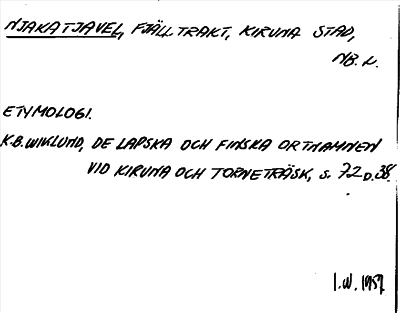 NJAKATJAVEL, FJÄLLTRAKT, KIRUNA STAD,
NB. L.
ETYMOLOGI.
K.B. WIKLUND, DE LAPSKA OCH FINSKA ORTNAMNEN
VID KIRUNA OCH TORNETRÄSK, s. 72 o. 38.
I.W. 1959